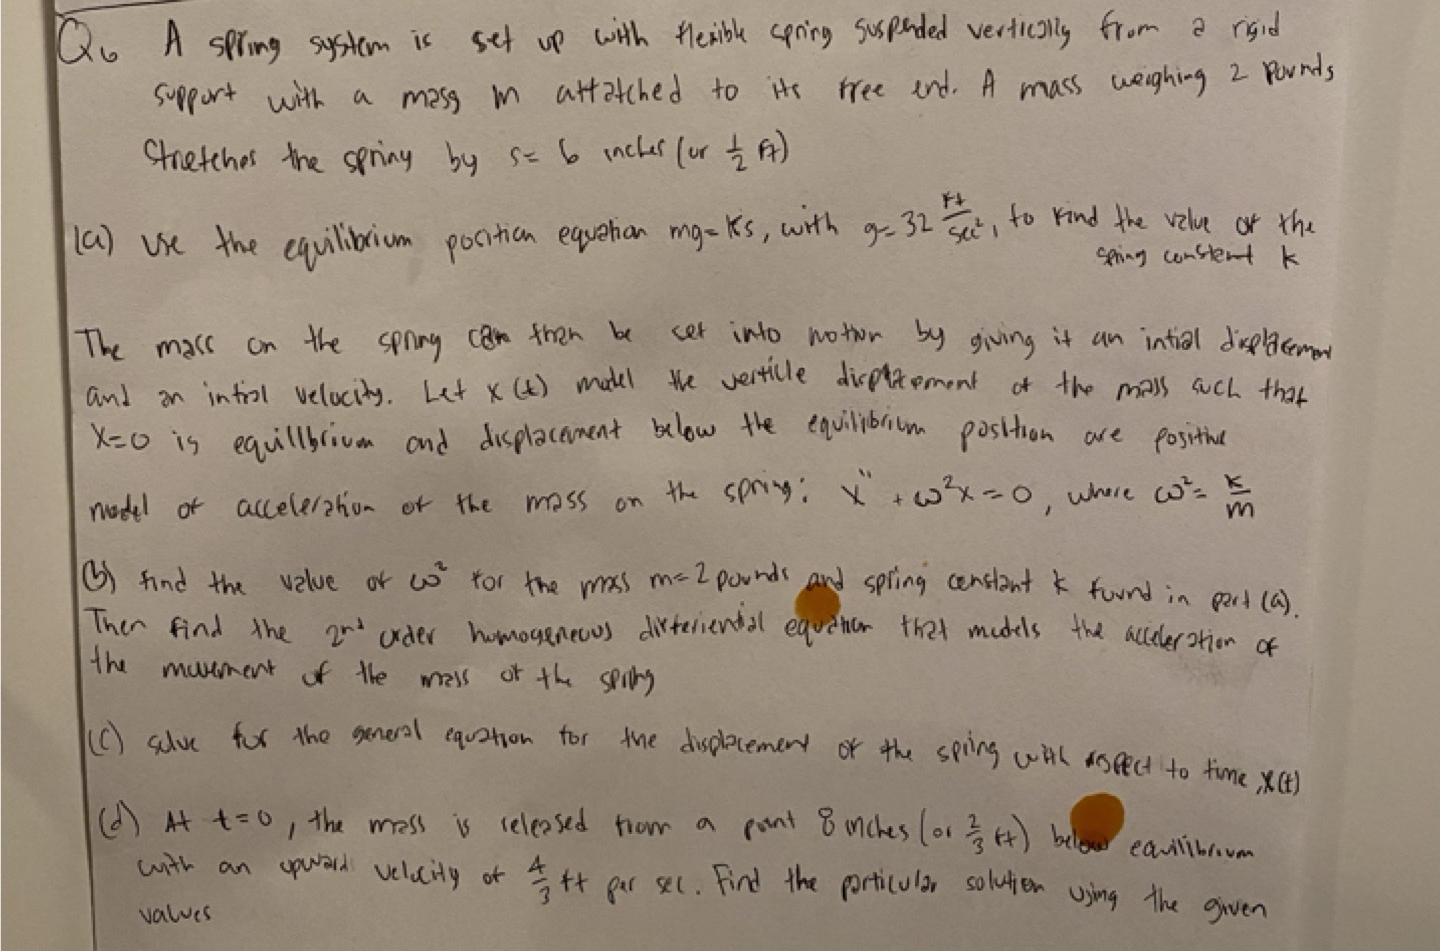 Q6 A spring system is set up with flexible spring suspended vertically from a rigid
support with a mass m attatched to its free end. A mass weighing 2 Pounds
Stretches the spring by s= 6 inches (or 1/2 ft)
(a) use the equilibrium position equation mg=Ks, with g=32 ft/sec², to find the value of the
spring constant k
The mass on the spring can then be set into motion by giving it an intial displacement
and an intial velocity. Let x(t) model the verticle displacement of the mass such that
X=0 is equillbrium and displacement below the equilibrium position are positive
model of acceleration of the mass on the spring: x'' + ω²x = 0, where ω² = k/m
(b) find the value of ω² for the mass m=2 pounds and spring constant k found in part (a).
Then find the 2nd order homogeneous differiential equation that models the acceleration of
the movement of the mass of the spring
(c) solve for the general equation for the displacement of the spring with respect to time, x(t)
(d) At t=0, the mass is released from a point 8 inches (or 2/3 ft) below equilibrium
with an upward velocity of 4/3 ft per sec. Find the particular solution using the given
values